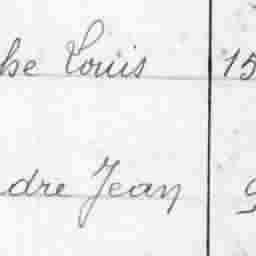 he Louis 15
dre Jean 9